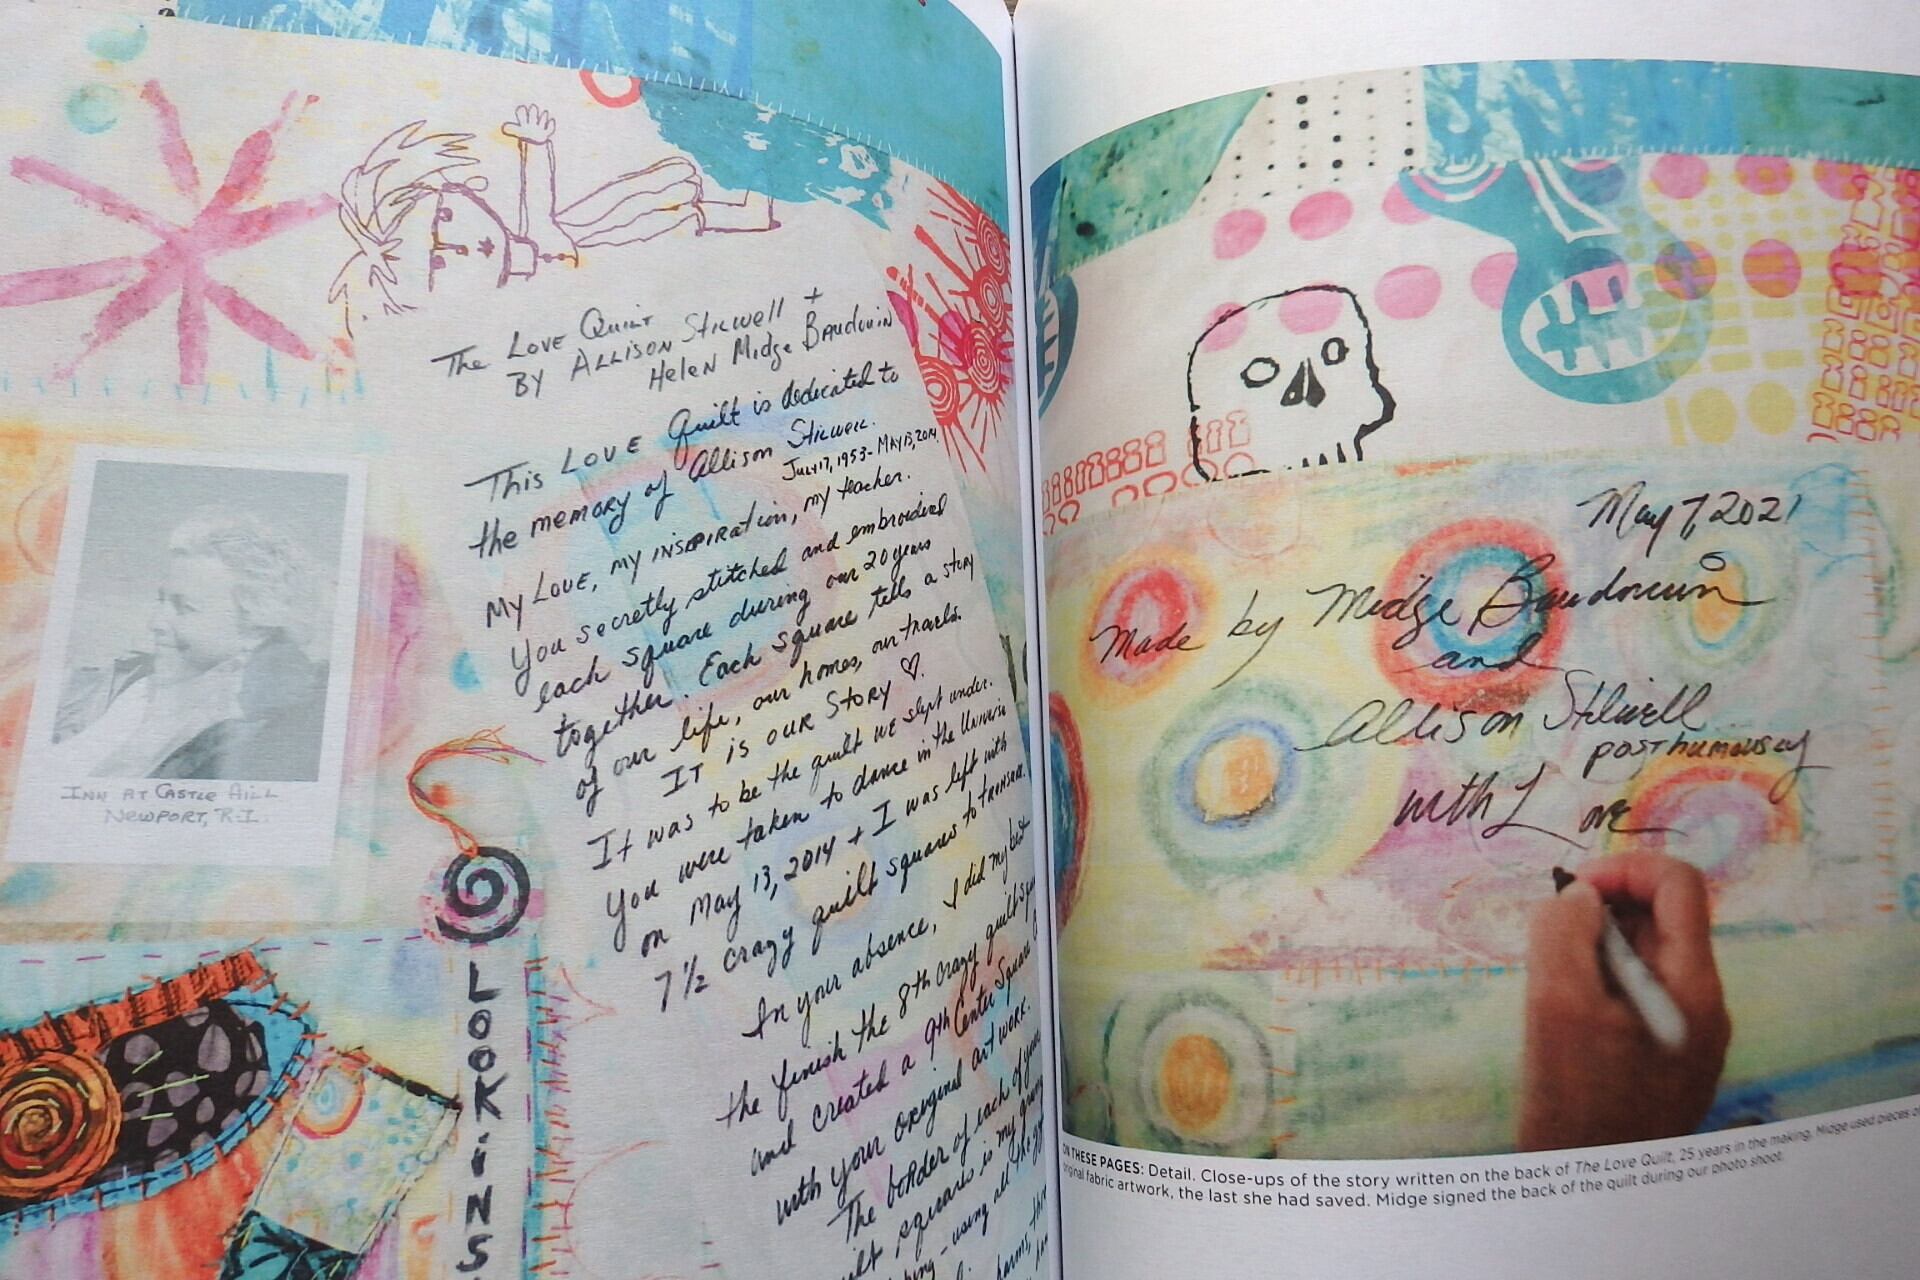 The LOVE QUILT
BY ALLISON STILWELL +
HELEN MIDGE BAUDOUIN
This LOVE Quilt is dedicated to
the memory of Allison STILWELL.
JULY 17, 1953 - MAY 13, 2014.
My LOVE, my INSPIRATION, my teacher.
You secretly stitched and embroidered
each square during our 20 years
together. Each square tells a story
of our life, our homes, our travels.
IT IS OUR STORY ♡.
It was to be the quilt we slept under.
You were taken to dance in the Universe
on May 13, 2014 + I was left with
7 ½ crazy quilt squares to treasure.
In your absence, I did my best
the finish the 8th crazy quilt
and created a 9th Center Square
with your original art work.
The border of each of your
squares is my
using all the
INN AT CASTLE HILL
NEWPORT, R.I.
LOOKiNS
May 7, 2021
Made by Midge Baudouin
and
Allison Stilwell
posthumously
with Love
ON THESE PAGES: Detail. Close-ups of the story written on the back of The Love Quilt, 25 years in the making. Midge used pieces
original fabric artwork, the last she had saved. Midge signed the back of the quilt during our photo shoot.